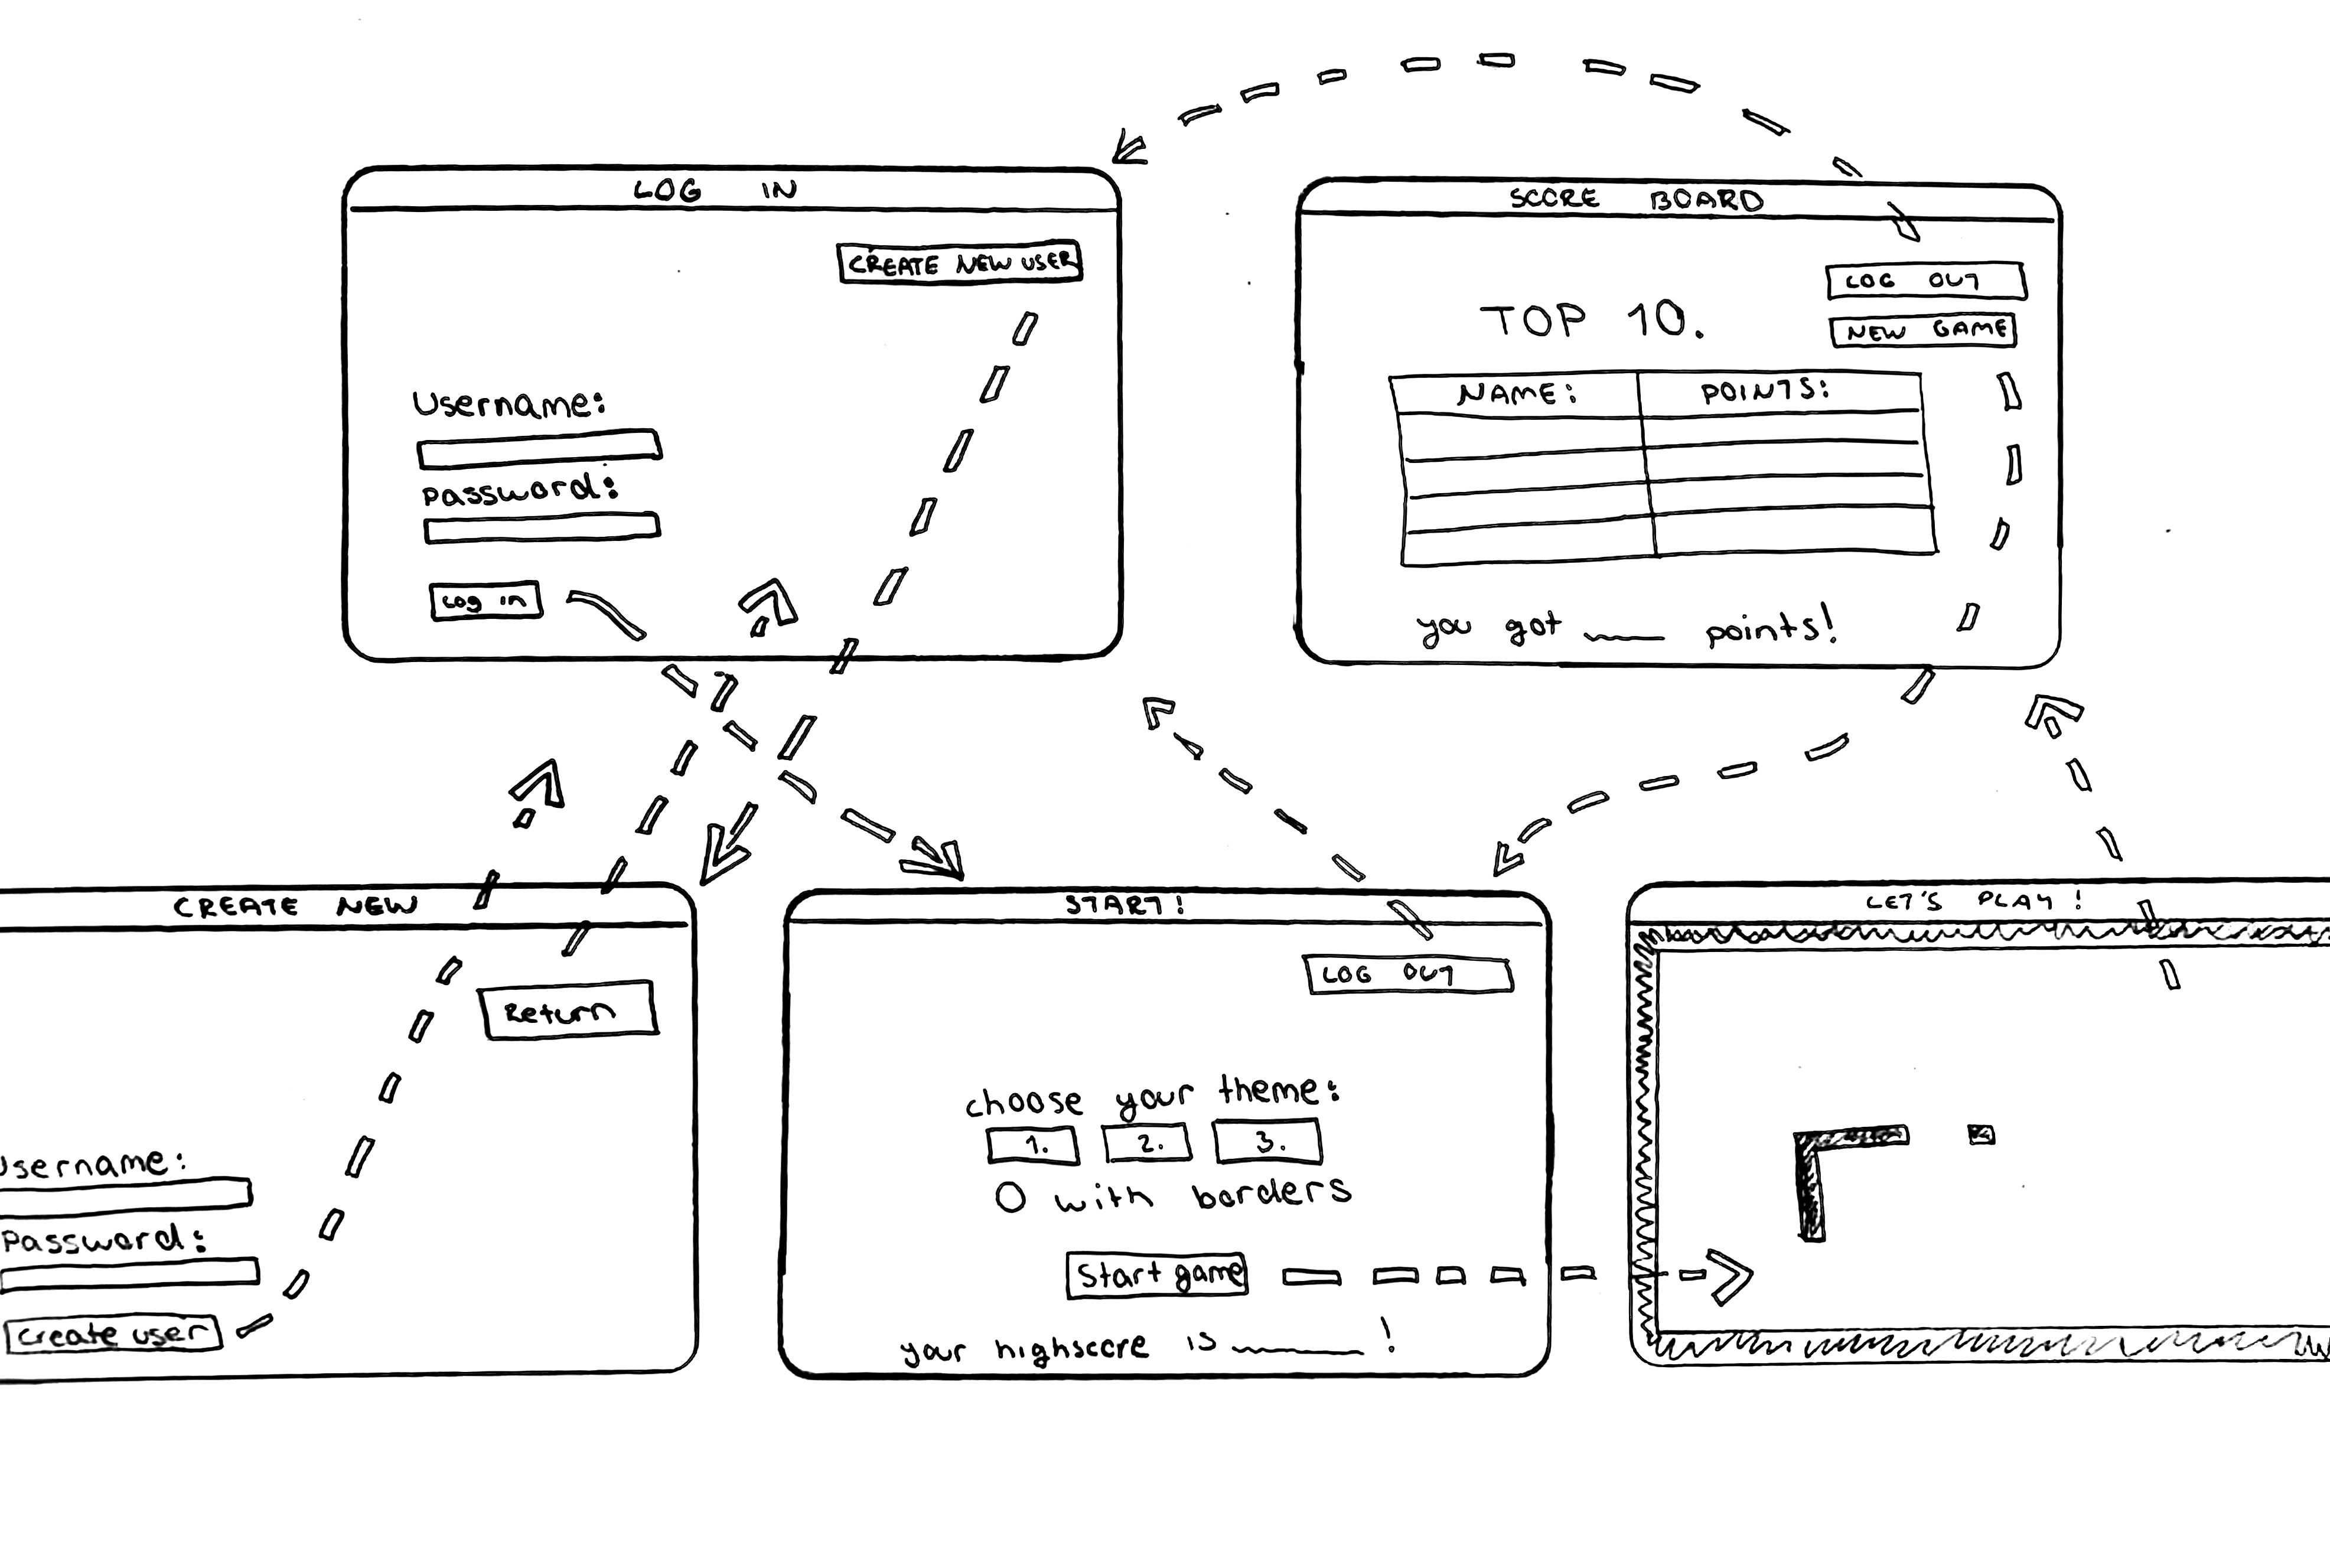 LOG IN
CREATE NEW USER
Username:
Password:
Log in
SCORE BOARD
LOG OUT
NEW GAME
TOP 10.
NAME: POINTS:
you got ___ points!
CREATE NEW
Return
Username:
Password:
Create user
START!
LOG OUT
choose your theme:
1. 2. 3.
O with borders
Start game
your highscore is ______ !
LET'S PLAY!